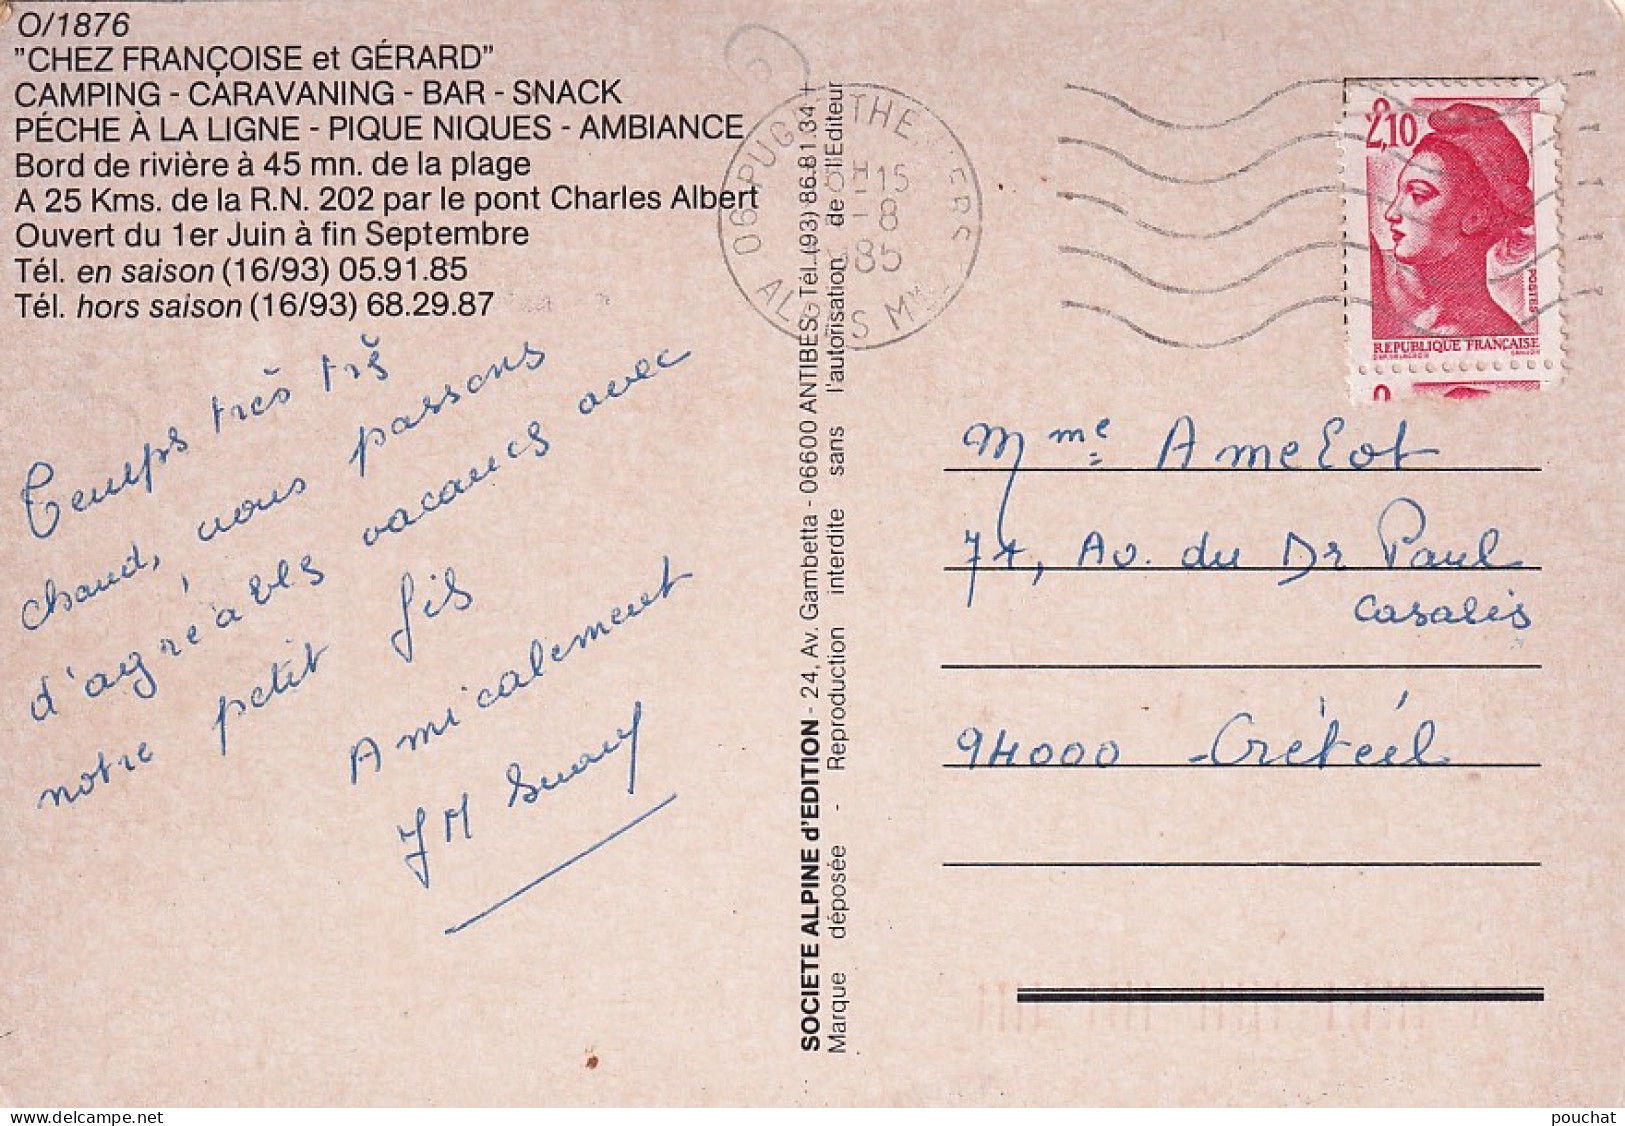 O/1876
"CHEZ FRANÇOISE et GÉRARD"
CAMPING - CARAVANING - BAR - SNACK
PÉCHE À LA LIGNE - PIQUE NIQUES - AMBIANCE
Bord de rivière à 45 mn. de la plage
A 25 Kms. de la R.N. 202 par le pont Charles Albert
Ouvert du 1er Juin à fin Septembre
Tél. en saison (16/93) 05.91.85
Tél. hors saison (16/93) 68.29.87
Temps très très
chaud, nous passons
d'agréables vacances avec
notre petit fils
Amicalement
JM
SOCIETE ALPINE d'EDITION - 24, Av. Gambetta - 06600 ANTIBES - Tél. (93) 86.81.34 +
Marque déposée - Reproduction interdite sans l'autorisation de l'Editeur
06 PUGET THENIERS
15
8
985
ALPES MMES
2,10
POSTES
REPUBLIQUE FRANÇAISE
Mme Amelot
74, Av. du Dr Paul
Casalis
94000 - Créteil
delcampe.net
pouchat